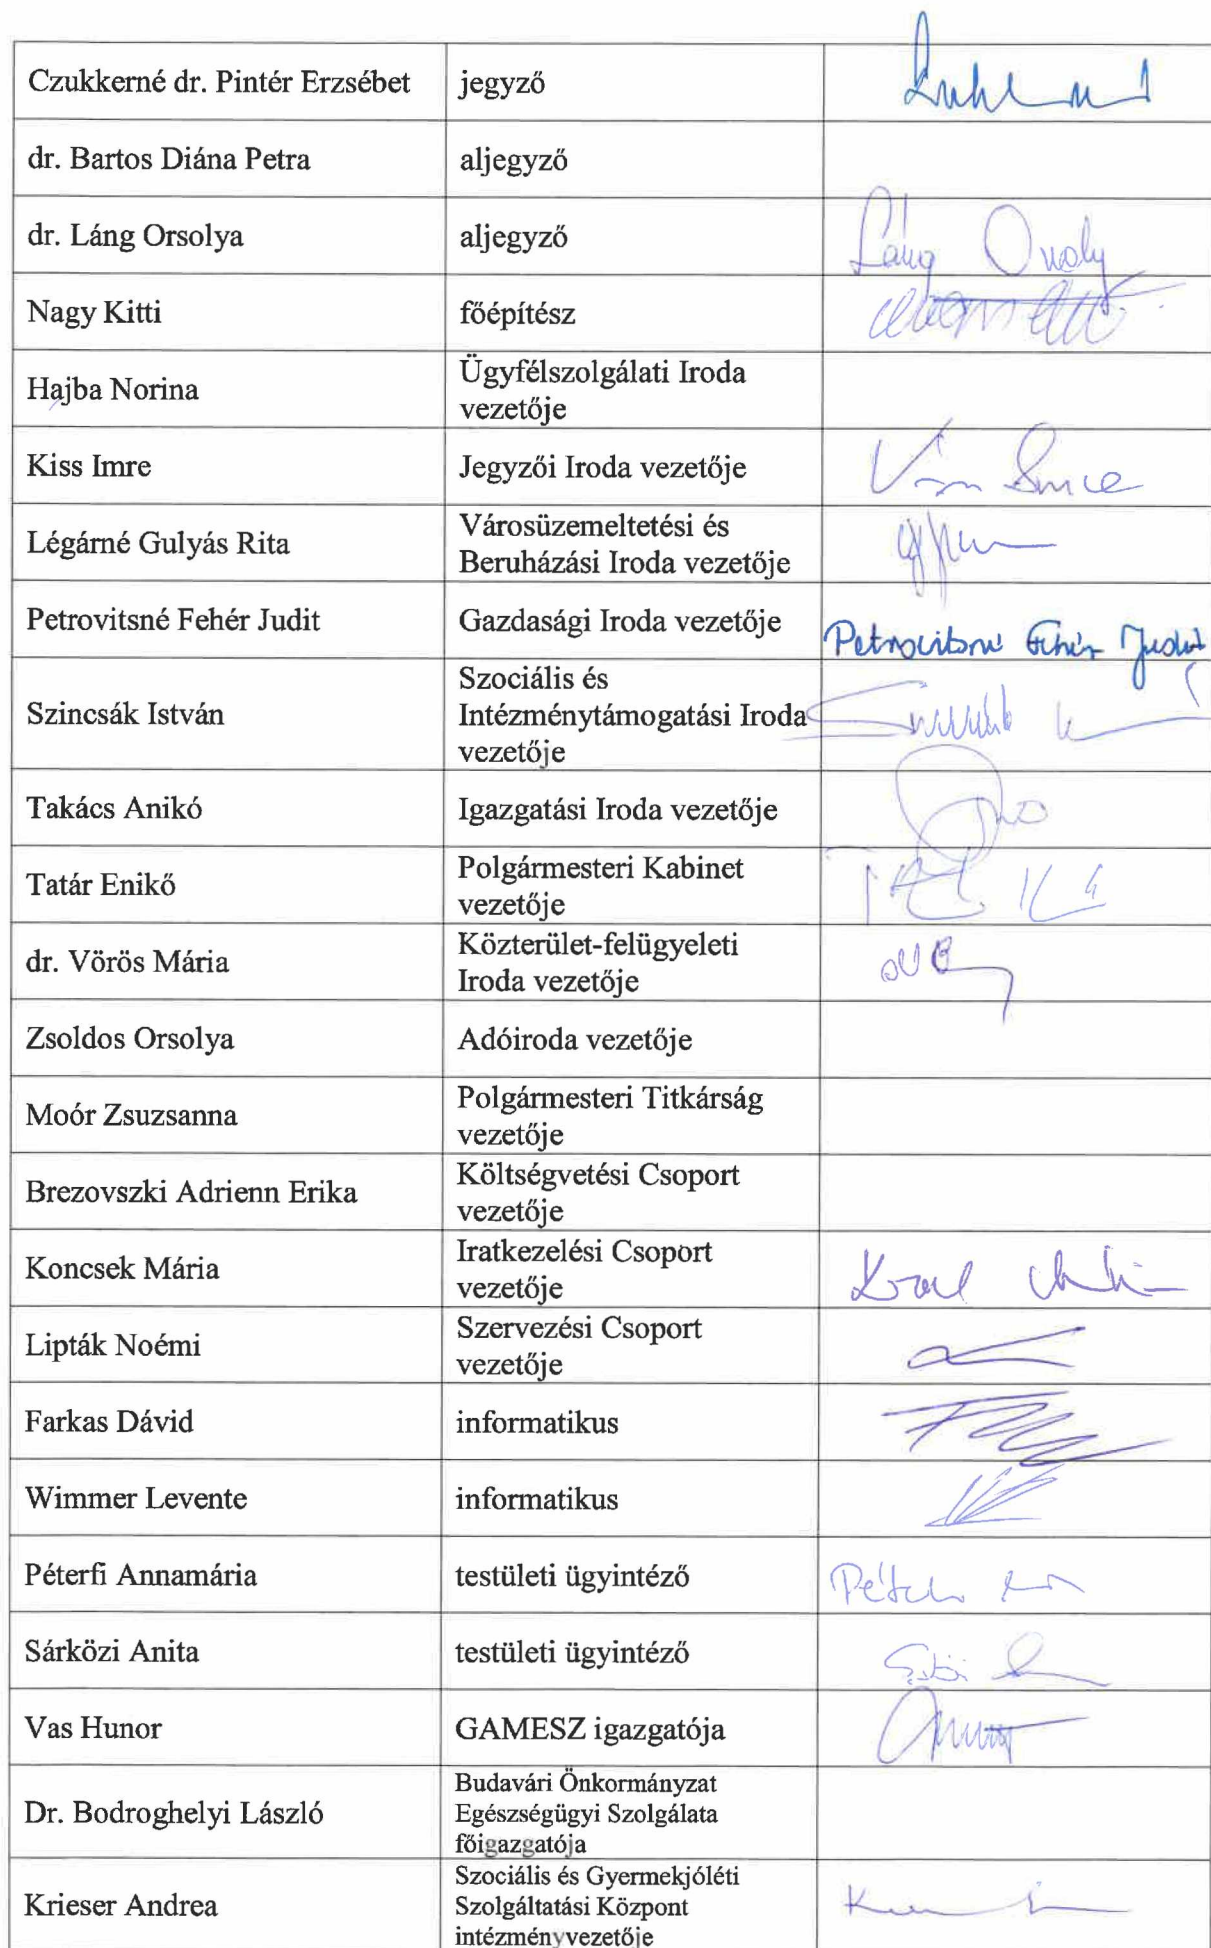 Czukkerné dr. Pintér Erzsébet jegyző
dr. Bartos Diána Petra aljegyző
dr. Láng Orsolya aljegyző Láng Orsoly
Nagy Kitti főépítész
Hajba Norina Ügyfélszolgálati Iroda
vezetője
Kiss Imre Jegyzői Iroda vezetője
Légárné Gulyás Rita Városüzemeltetési és
Beruházási Iroda vezetője
Petrovitsné Fehér Judit Gazdasági Iroda vezetője Petrovitsné Fehér Judit
Szincsák István Szociális és
Intézménytámogatási Iroda
vezetője
Takács Anikó Igazgatási Iroda vezetője
Tatár Enikő Polgármesteri Kabinet
vezetője
dr. Vörös Mária Közterület-felügyeleti
Iroda vezetője
Zsoldos Orsolya Adóiroda vezetője
Moór Zsuzsanna Polgármesteri Titkárság
vezetője
Brezovszki Adrienn Erika Költségvetési Csoport
vezetője
Koncsek Mária Iratkezelési Csoport
vezetője
Lipták Noémi Szervezési Csoport
vezetője
Farkas Dávid informatikus
Wimmer Levente informatikus
Péterfi Annamária testületi ügyintéző
Sárközi Anita testületi ügyintéző
Vas Hunor GAMESZ igazgatója
Dr. Bodroghelyi László Budavári Önkormányzat
Egészségügyi Szolgálata
főigazgatója
Krieser Andrea Szociális és Gyermekjóléti
Szolgáltatási Központ
intézményvezetője